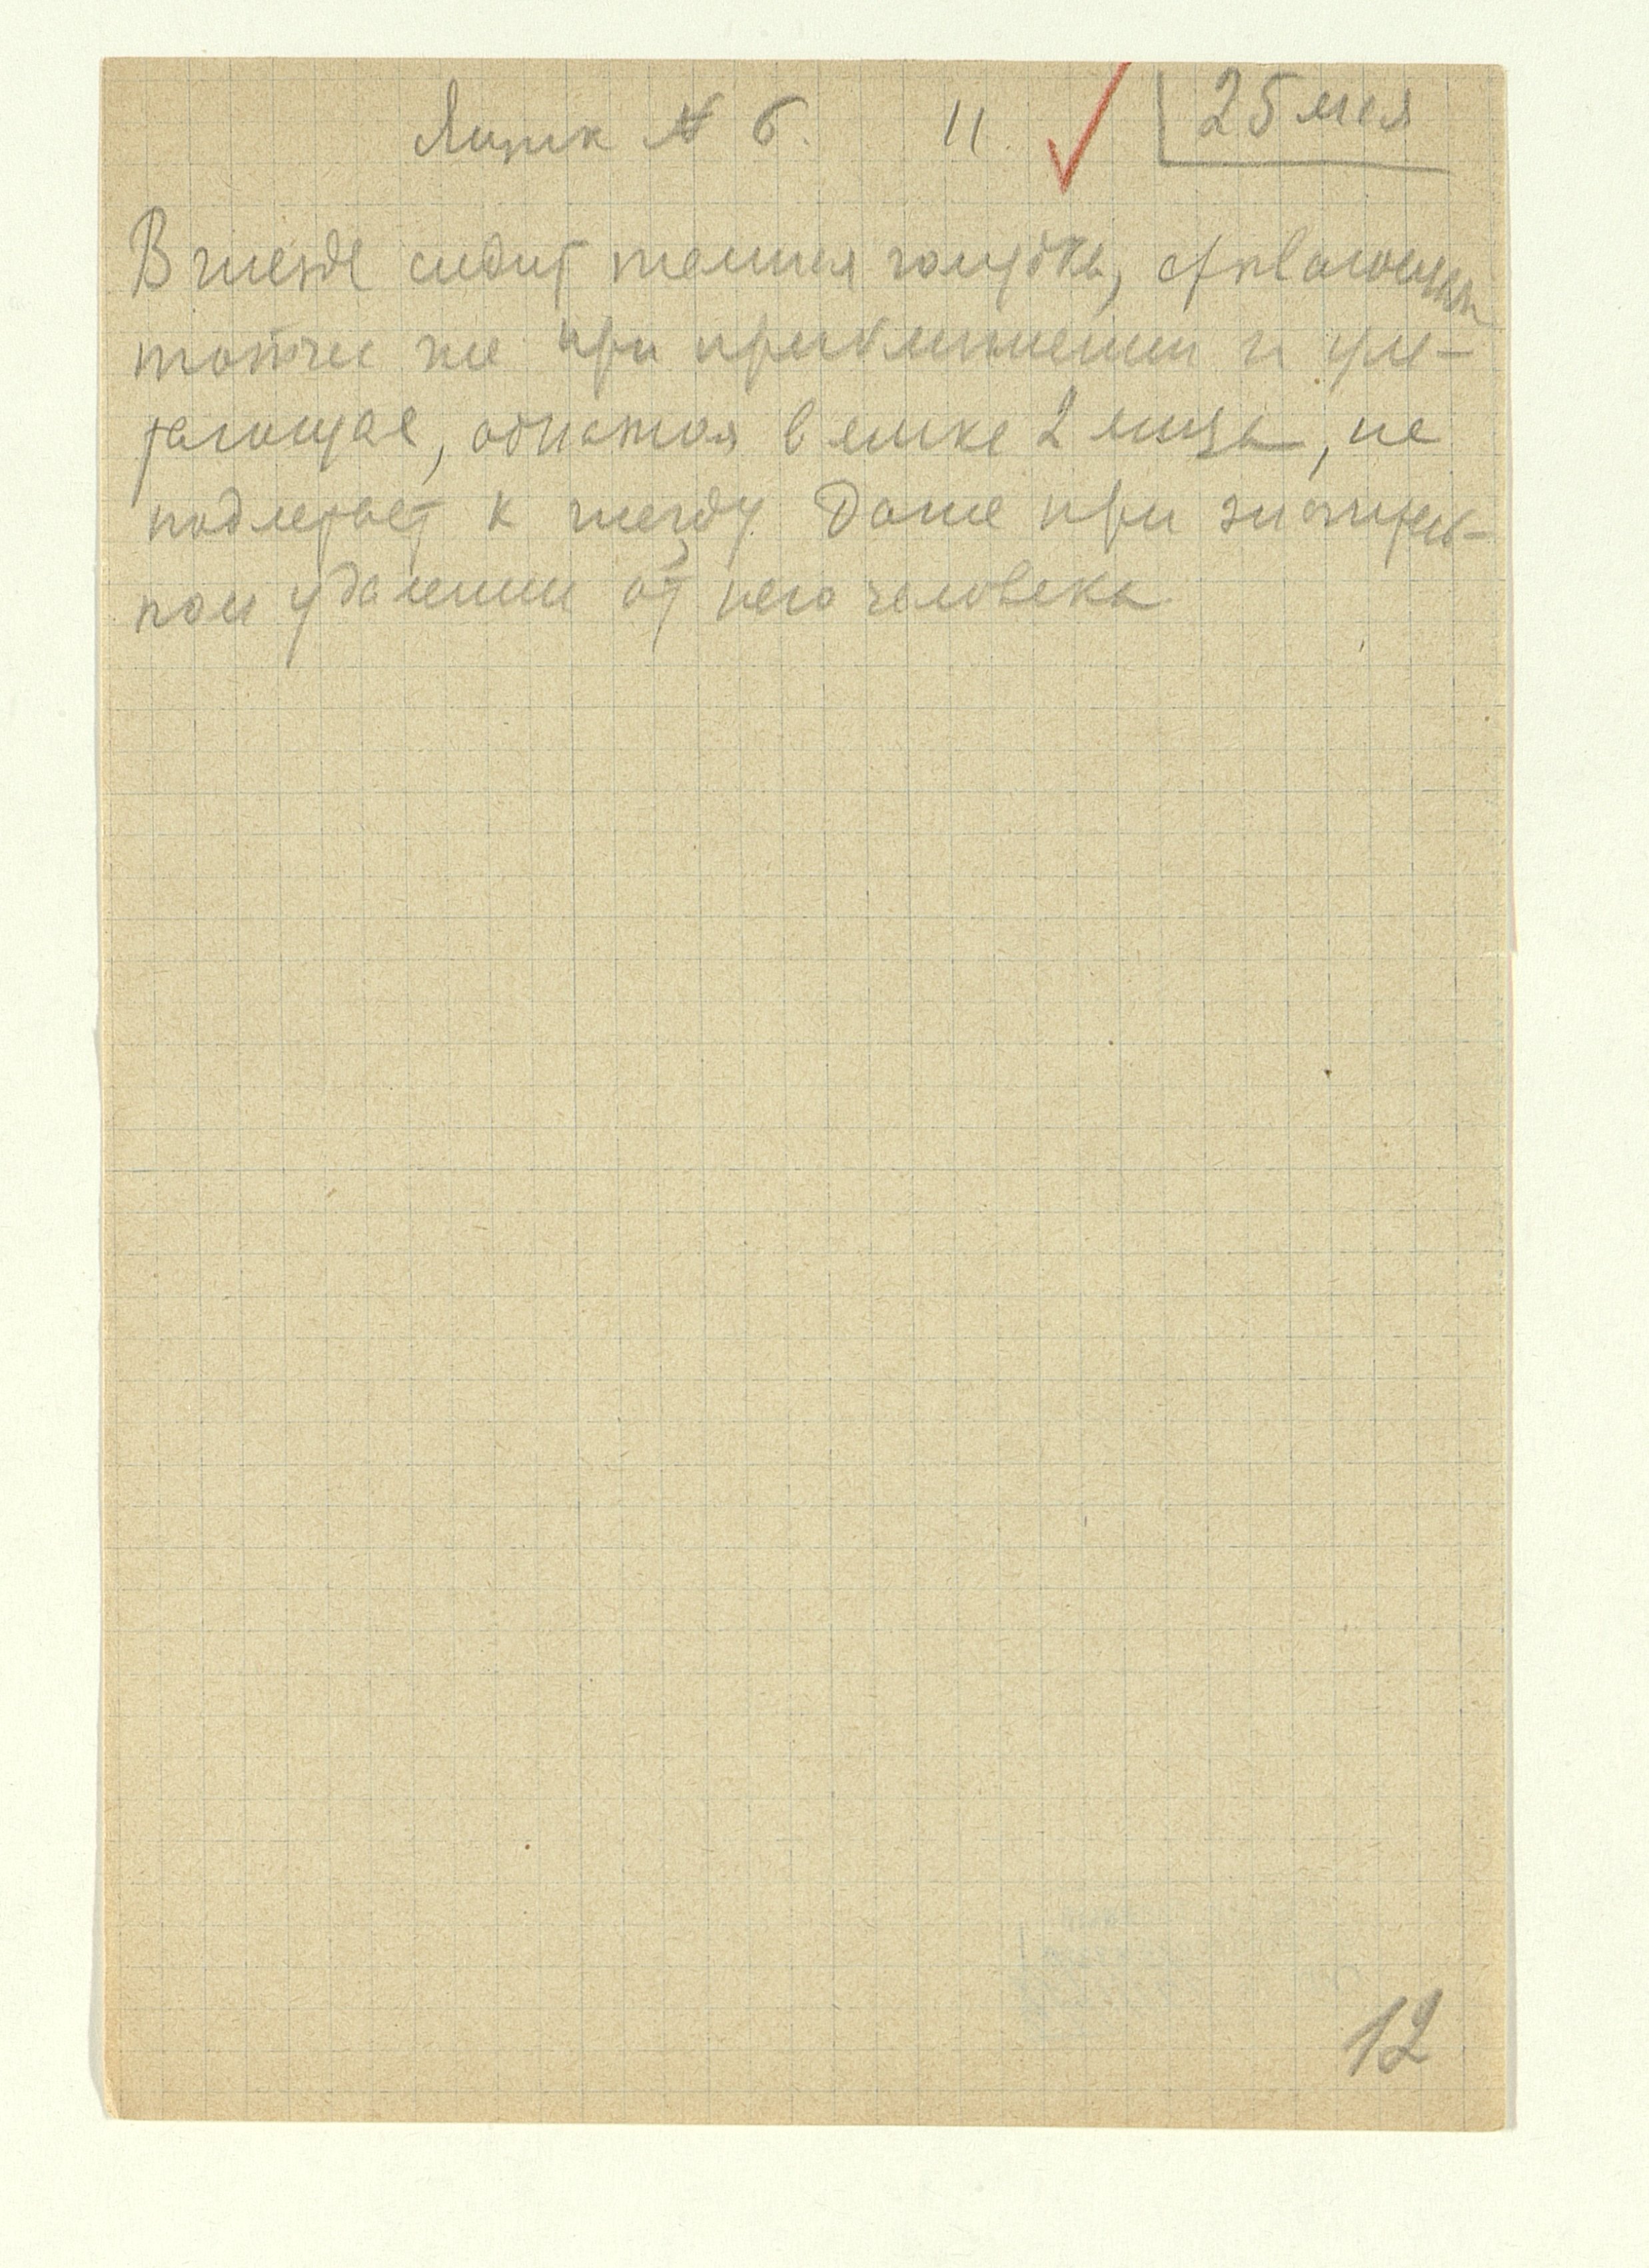 Ящик № 6. 11. 25 мая
В гнезде сидит темная голубка, срывающаяся
тотчас же при приближении и уле-
тающая, обнажая в ямке 2 яйца, не
подлетает к гнезду даже при значитель-
ном удалении от него человека
12